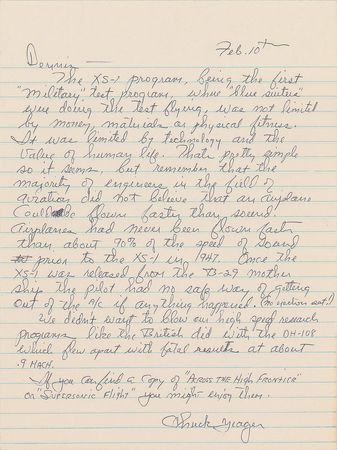 Feb. 10th
Dennis —
The XS-1 program, being the first
"military" test program, where "blue suiters"
were doing the test flying, was not limited
by money, materials or physical fitness.
It was limited by technology and the
value of human life. Thats pretty simple
so it seems, but remember that the
majority of engineers in the field of
aviation did not believe that an airplane
could be flown faster than sound.
Airplanes had never been flown faster
than about 90% of the speed of sound
prior to the XS-1 in 1947. Once the
XS-1 was released from the B-29 mother
ship the pilot had no safe way of getting
out of the A/C if anything happened. (No ejection seat.)
We didn't want to blow our high speed research
programs like the British did with the DH-108
which flew apart with fatal results at about
.9 MACH.
If you can find a copy of "ACROSS THE HIGH FRONTIER"
or "SUPERSONIC FLIGHT" you might enjoy them.
Chuck Yeager